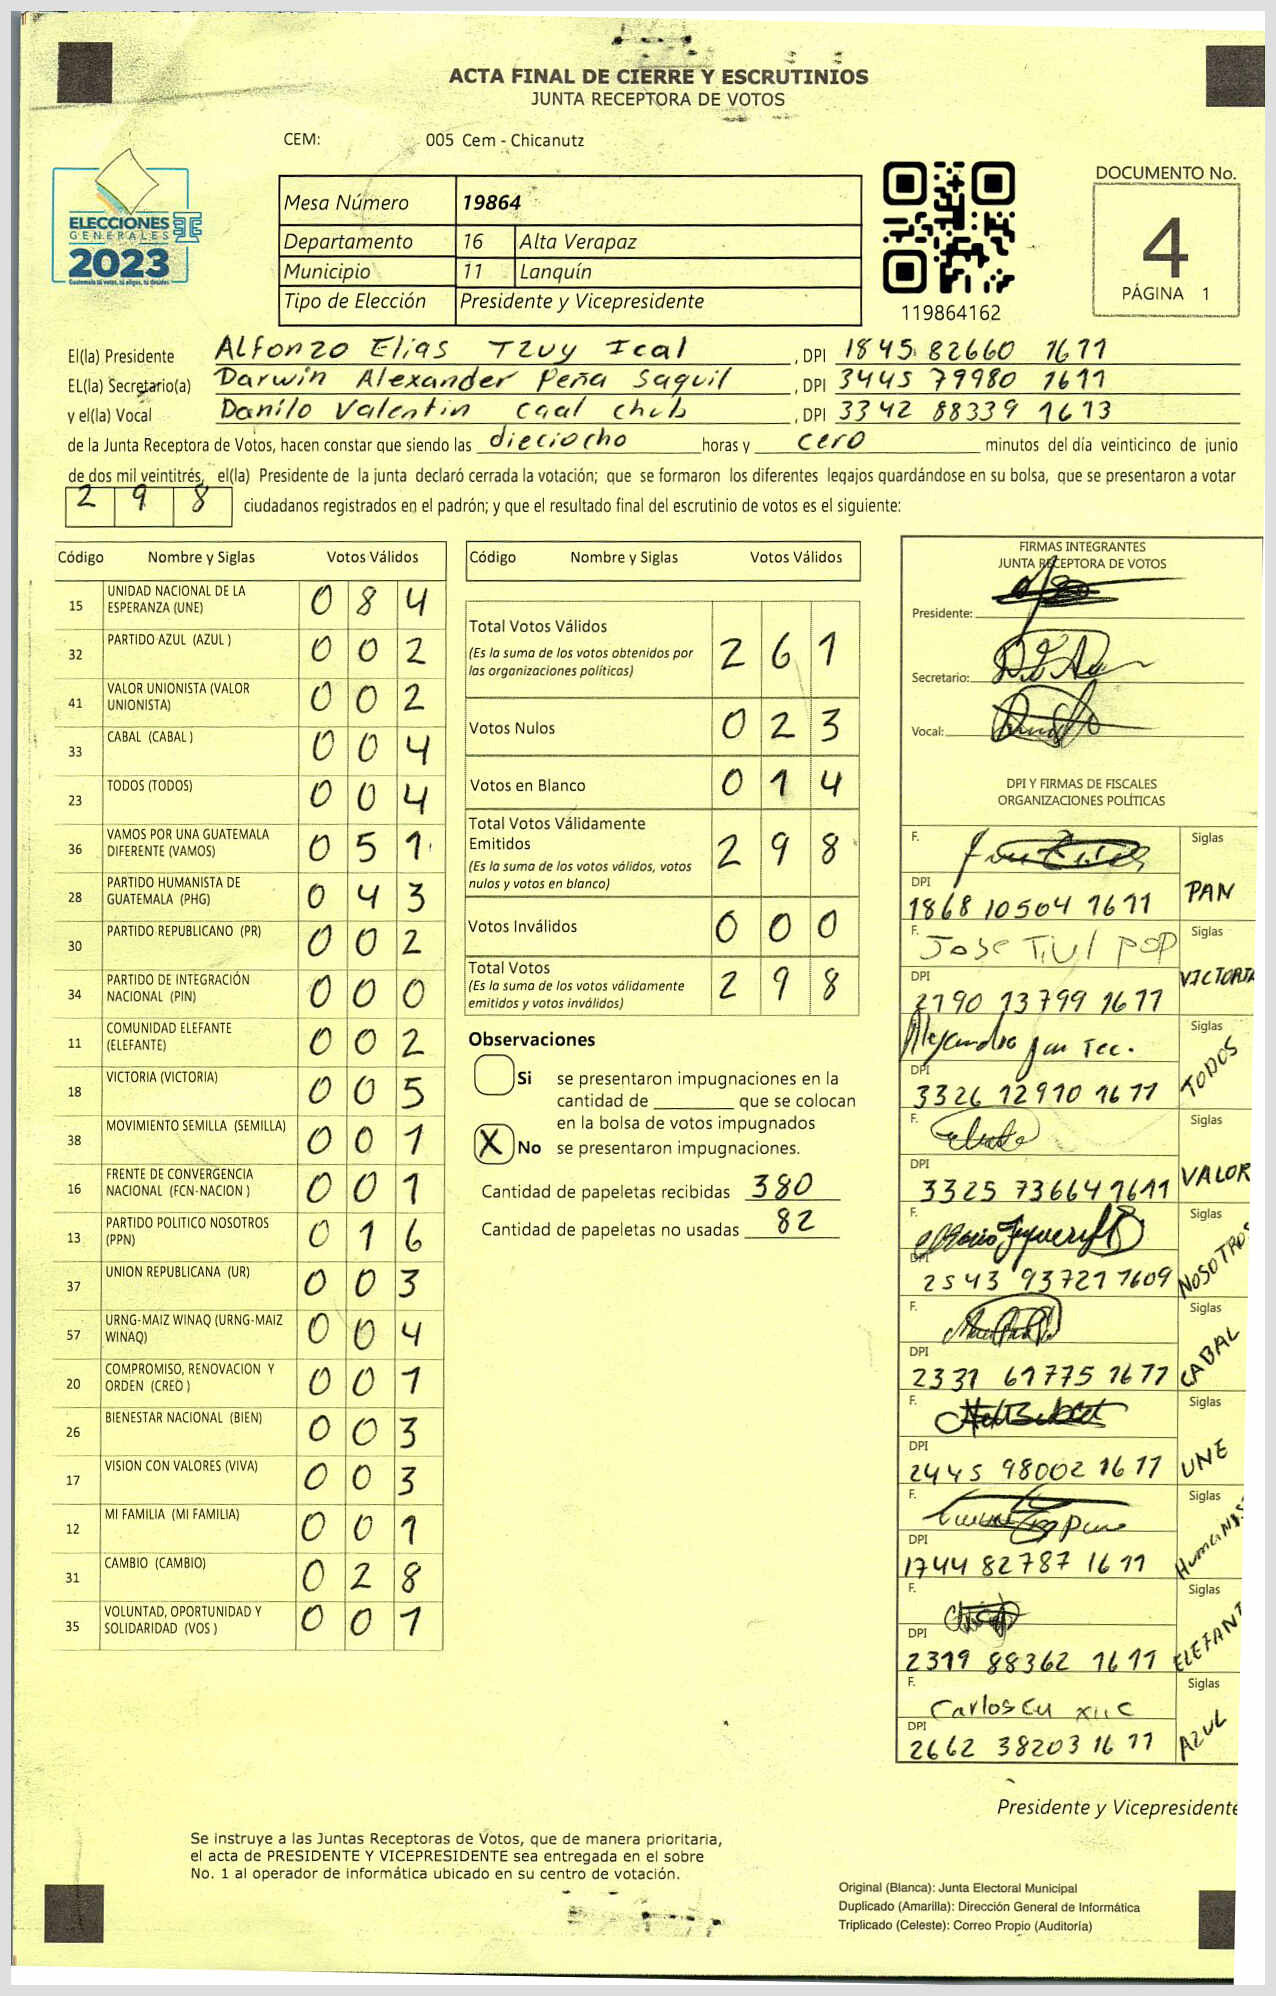 ACTA FINAL DE CIERRE Y ESCRUTINIOS
JUNTA RECEPTORA DE VOTOS
CEM: 005 Cem - Chicanutz
ELECCIONES
GENERALES
2023
Guatemala tú votas, tú eliges, tú decides
Mesa Número 19864
Departamento 16 Alta Verapaz
Municipio 11 Lanquín
Tipo de Elección Presidente y Vicepresidente
119864162
DOCUMENTO No.
4
PÁGINA 1
El(la) Presidente Alfonzo Elias Tzuy Ical, DPI 1845 82660 1611
EL(la) Secretario(a) Darwin Alexander Peña Saquil, DPI 3445 79980 1611
y el(la) Vocal Danilo Valentin Caal Chub, DPI 3342 88339 1613
de la Junta Receptora de Votos, hacen constar que siendo las dieciocho horas y cero minutos del día veinticinco de junio
de dos mil veintitrés, el(la) Presidente de la junta declaró cerrada la votación; que se formaron los diferentes legajos guardándose en su bolsa, que se presentaron a votar
298 ciudadanos registrados en el padrón; y que el resultado final del escrutinio de votos es el siguiente:
Código Nombre y Siglas Votos Válidos
15 UNIDAD NACIONAL DE LA ESPERANZA (UNE) 084
32 PARTIDO AZUL (AZUL ) 002
41 VALOR UNIONISTA (VALOR UNIONISTA) 002
33 CABAL (CABAL ) 004
23 TODOS (TODOS) 004
36 VAMOS POR UNA GUATEMALA DIFERENTE (VAMOS) 051
28 PARTIDO HUMANISTA DE GUATEMALA (PHG) 043
30 PARTIDO REPUBLICANO (PR) 002
34 PARTIDO DE INTEGRACIÓN NACIONAL (PIN) 000
11 COMUNIDAD ELEFANTE (ELEFANTE) 002
18 VICTORIA (VICTORIA) 005
38 MOVIMIENTO SEMILLA (SEMILLA) 001
16 FRENTE DE CONVERGENCIA NACIONAL (FCN-NACION ) 001
13 PARTIDO POLITICO NOSOTROS (PPN) 016
37 UNION REPUBLICANA (UR) 003
57 URNG-MAIZ WINAQ (URNG-MAIZ WINAQ) 004
20 COMPROMISO, RENOVACION Y ORDEN (CREO ) 001
26 BIENESTAR NACIONAL (BIEN) 003
17 VISION CON VALORES (VIVA) 003
12 MI FAMILIA (MI FAMILIA) 001
31 CAMBIO (CAMBIO) 028
35 VOLUNTAD, OPORTUNIDAD Y SOLIDARIDAD (VOS ) 001
Código Nombre y Siglas Votos Válidos
Total Votos Válidos 261
(Es la suma de los votos obtenidos por
las organizaciones políticas)
Votos Nulos 023
Votos en Blanco 014
Total Votos Válidamente
Emitidos 298
(Es la suma de los votos válidos, votos
nulos y votos en blanco)
Votos Inválidos 000
Total Votos 298
(Es la suma de los votos válidamente
emitidos y votos inválidos)
Observaciones
Si se presentaron impugnaciones en la
cantidad de que se colocan
en la bolsa de votos impugnados
X No se presentaron impugnaciones.
Cantidad de papeletas recibidas 380
Cantidad de papeletas no usadas 82
FIRMAS INTEGRANTES
JUNTA RECEPTORA DE VOTOS
Presidente:
Secretario:
Vocal:
DPI Y FIRMAS DE FISCALES
ORGANIZACIONES POLÍTICAS
F. Siglas
DPI
1868 10504 1611 PAN
F. Jose Tiul Pop Siglas
DPI
2190 13799 1611 VICTORIA
Alejandro Tec. Siglas
DPI
3326 12910 1611 TODOS
F. Siglas
DPI
3325 73664 1611 VALOR
F. Siglas
DPI
2543 93721 1609 NOSOTROS
F. Siglas
DPI
2331 61775 1611 CABAL
F. Siglas
DPI
2445 98002 1611 UNE
F. Siglas
DPI
1744 82787 1611
F. Siglas
DPI
2319 88362 1611 ELEFANT
F. Carlos Cu Siglas
DPI
2662 38203 1611 AZUL
Presidente y Vicepresidente
Se instruye a las Juntas Receptoras de Votos, que de manera prioritaria,
el acta de PRESIDENTE Y VICEPRESIDENTE sea entregada en el sobre
No. 1 al operador de informática ubicado en su centro de votación.
Original (Blanca): Junta Electoral Municipal
Duplicado (Amarilla): Dirección General de Informática
Triplicado (Celeste): Correo Propio (Auditoría)